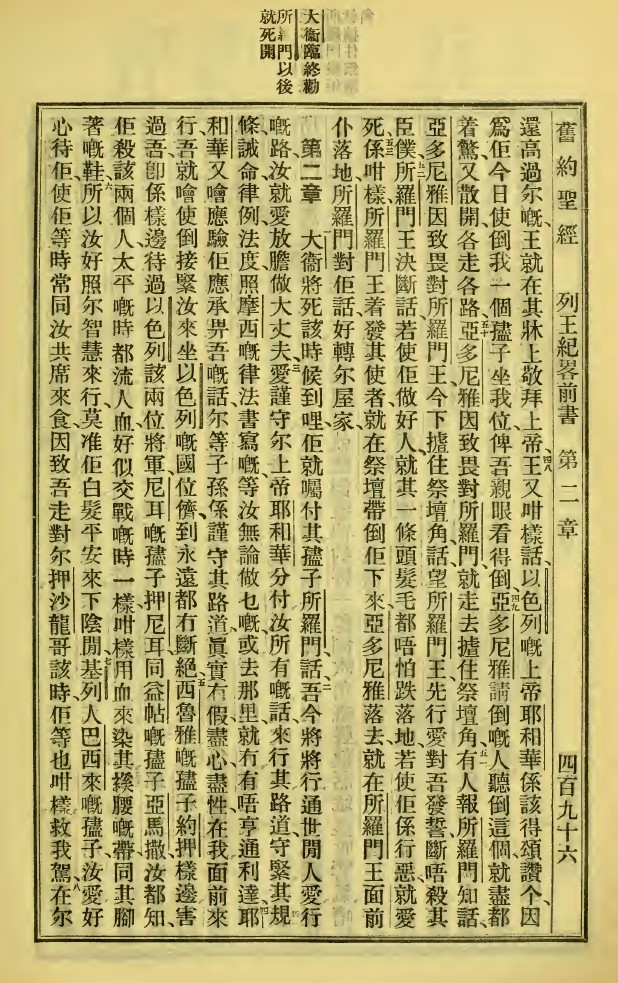 舊約聖經 列王紀畧前書 第二章 四百九十六
還高過尔嘅、王就在其牀上敬拜上帝、四八王又咁樣話、以色列嘅上帝耶和華係該得頌讚、今因
爲佢今日使倒我一個孻子坐我位、俾吾親眼看得倒、四九亞多尼雅請倒嘅人聽倒這個、就盡都
着驚、又散開各走各路、五十亞多尼雅因致畏對所羅門、就走去搲住祭壇角、五一有人報所羅門知話、
亞多尼雅因致畏對所羅門王、今下搲住祭壇角話、望所羅門王先行愛對吾發誓、斷唔殺其
臣僕、五二所羅門王決斷話、若使佢做好人、就其一條頭髮毛都唔怕跌落地、若使佢係行惡、就愛
死係咁樣、五三所羅門王着發其使者、就在祭壇帶倒佢下來、亞多尼雅落去、就在所羅門王面前
仆落地、所羅門對佢話、好轉尔屋家、
大衞臨終勸
所羅門以後
就死開
第二章 一大衞將死該時候到哩、佢就囑付其孻子所羅門話、二吾今將將行通世間人愛行
嘅路、汝就愛放膽做大丈夫、三愛謹守尔上帝耶和華分付汝所有嘅話、來行其路道、守緊其規
條誡命律例法度、照摩西嘅律法書寫嘅等、汝無論做乜嘅、或去那里、就冇有唔亨通利達、四耶
和華又噲應驗佢應承畀吾嘅話、尔等子孫係謹守其路道、眞實冇假、盡心盡性、在我面前來
行、吾就噲使倒接緊汝來坐以色列嘅國位、儕到永遠都冇斷絕、五西魯雅嘅孻子約押樣邊害
過吾、卽係樣邊待過以色列該兩位將軍、尼耳嘅孻子押尼耳同益帖嘅孻子亞馬撒、汝都知、
佢殺該兩個人、太平嘅時都流人血、好似交戰嘅時一樣、咁樣用血來染其㨆腰嘅帶、同其腳
著嘅鞋、六所以汝好照尔智慧來行、莫准佢白髮平安來下陰間、七基列人巴西來嘅孻子、汝愛好
心待佢、使佢等時常同汝共席來食、因致吾走對尔押沙龍哥該時、佢等也咁樣救我駕、八在尔